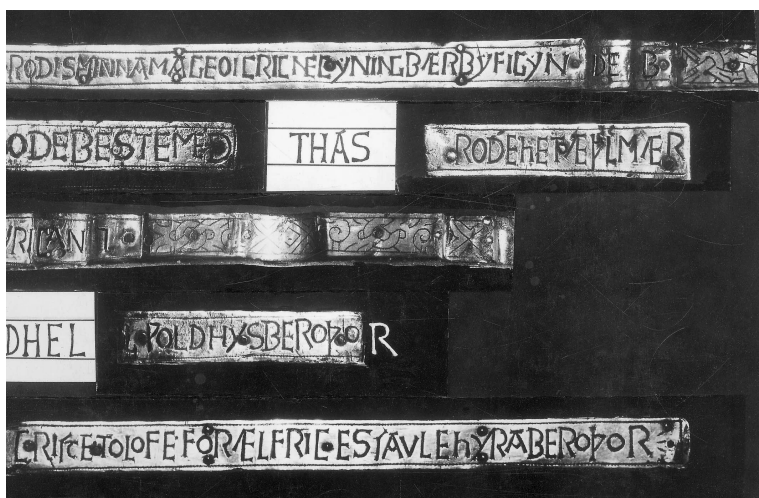 RODISMINNAMAGEOICRICNECYNINGBÆRBYFIGYNDE B
ODEBESTEMED THAS RODEhETÆÞLMÆR
YRICAN 7
DHEL ǷOLDHYSBEROÞOR
CRISTETOLOFEFORÆLFRICESSAVLEhYRABEROÞOR